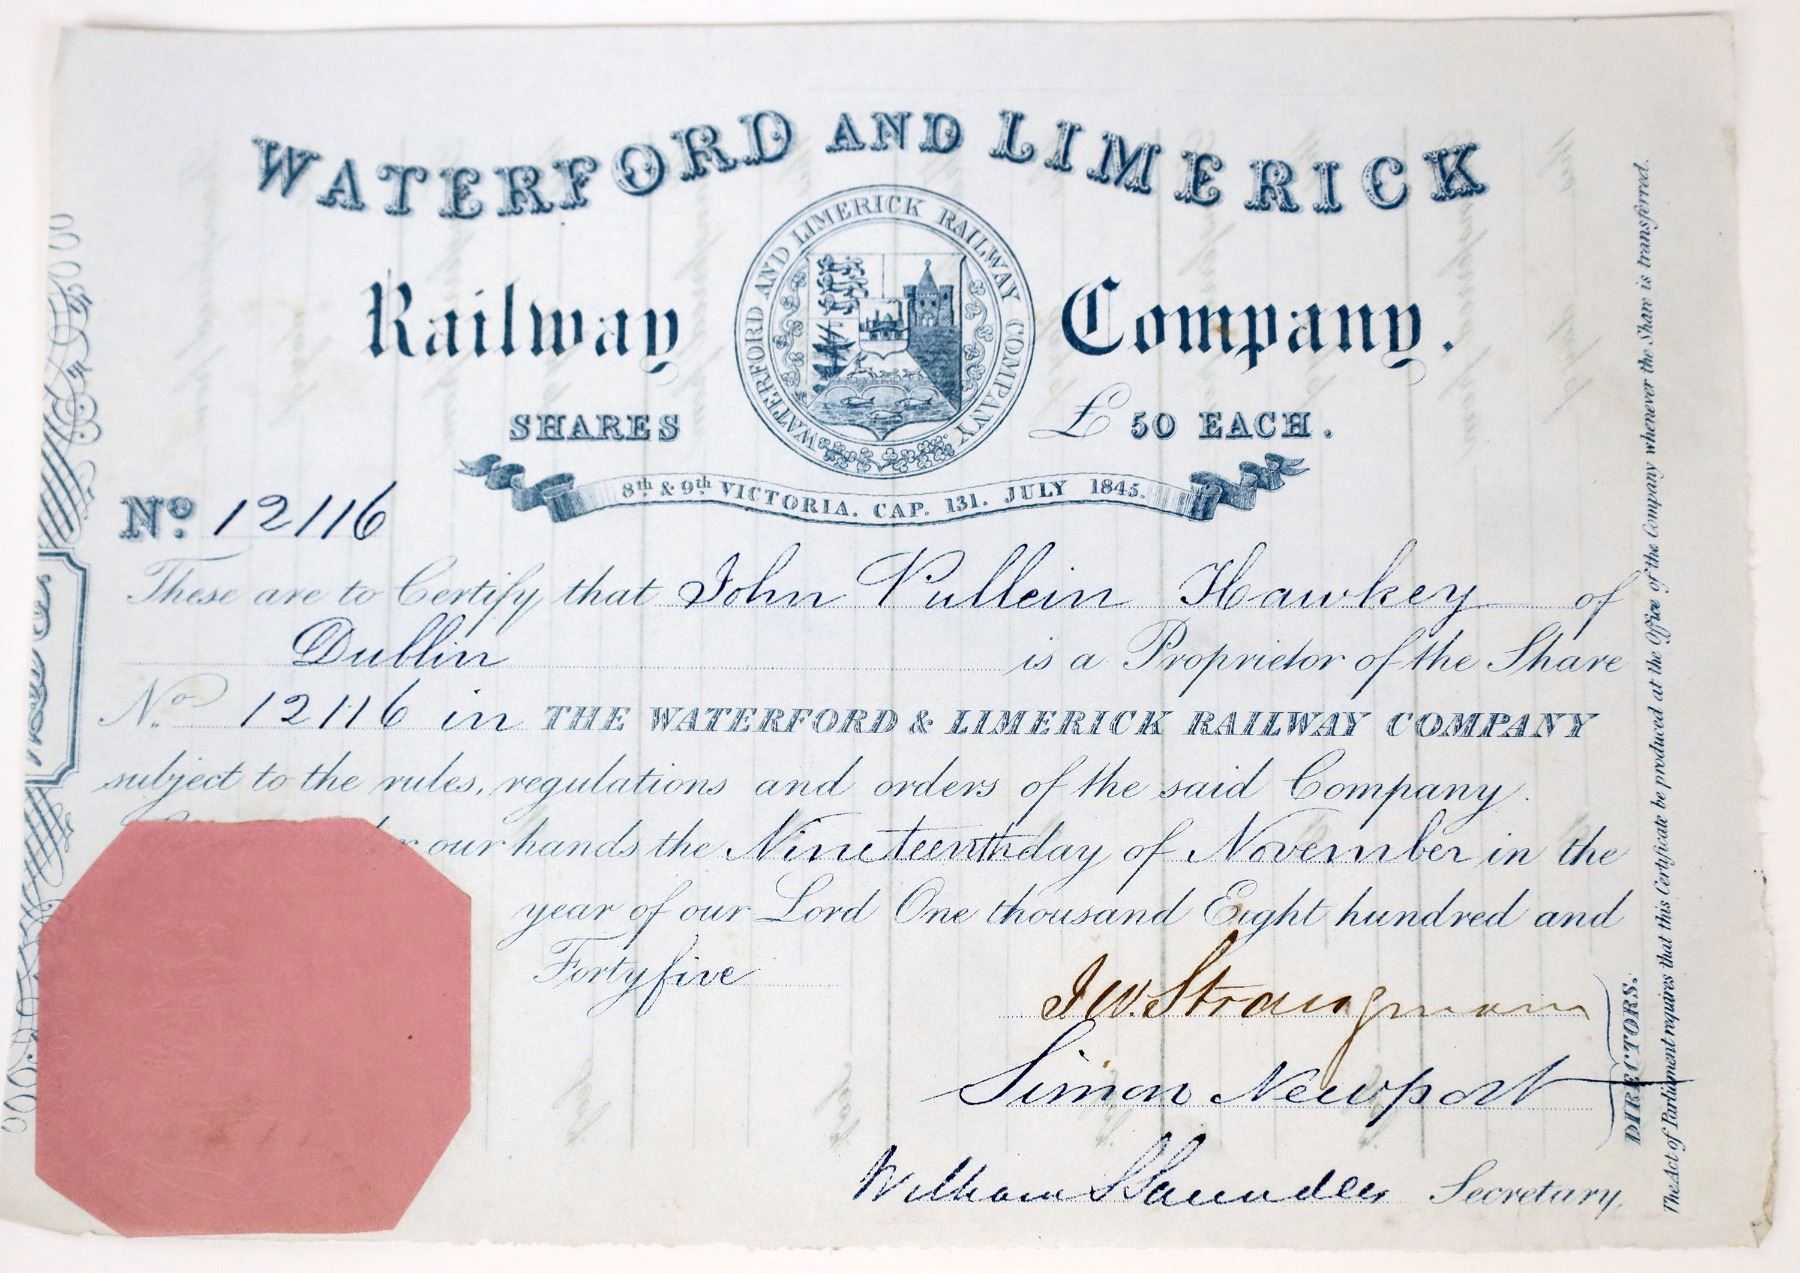 WATERFORD AND LIMERICK
Railway Company.
WATERFORD AND LIMERICK RAILWAY COMPANY
SHARES £ 50 EACH.
8th & 9th VICTORIA. CAP. 131. JULY 1845.
No. 12116
These are to Certify that John Pullein Hawkey of
Dublin is a Proprietor of the Share
No. 12116 in THE WATERFORD & LIMERICK RAILWAY COMPANY
subject to the rules, regulations and orders of the said Company.
our hands the Nineteenth day of November in the
year of our Lord One thousand Eight hundred and
Forty five
J W. Strangman
Simon Newport
DIRECTORS.
William Saunders Secretary,
The Act of Parliament requires that this Certificate be produced at the Office of the Company whenever the Share is transferred.